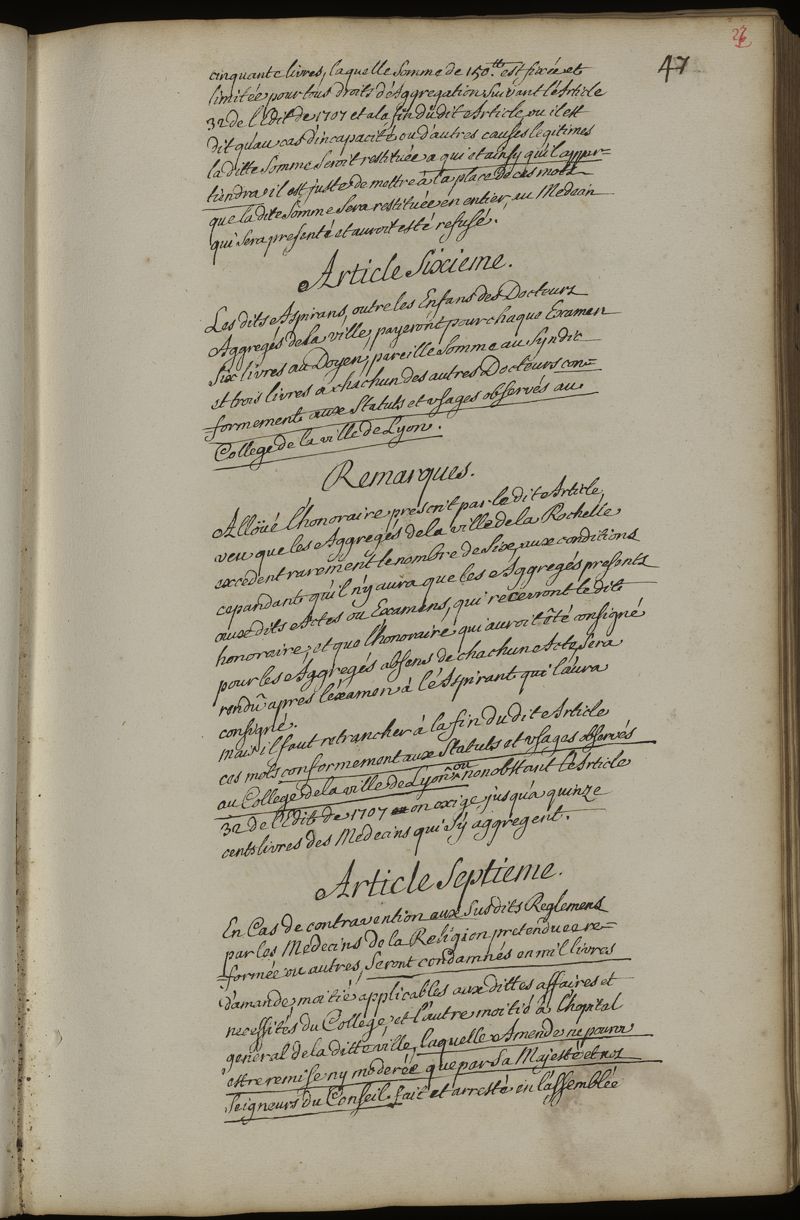 27
47
cinquante livres, laquelle somme de 150.tt est fixée et
limitée pour tous droits d'Aggregation suivant l'Article
32 de l'Edit de 1707 et a la fin du dit Article, ou il est
dit qu'au cas d'incapacité ou d'autres causes legitimes
la ditte somme seroit restituée a qui et ainsy qu'il appar=
tiendra, il est juste de mettre à la place de ces mots
que la dite somme sera restituée en entier, au Medecin
qui sera presenté et auroit esté refusé.
Article Sixieme.
Les dits Aspirans, outre les Enfans des Docteurs
Aggregés de la ville, payeront pour chaque Examen
six livres au Doyen, pareille somme au Syndic
et trois livres a chachun des autres Docteurs con=
=formement aux Statuts et usages observés au
College de la ville de Lyon.
Remarques.
Alloüé l'honoraire prescrit par le dit Article,
veu que les Aggregés de la ville de la Rochelle
excedent rarement le nombre de Six, aux conditions
cepandant qu'il n'y aura que les Aggregés presents
aux dits Actes ou Examens, qui recevront le dit
honoraire; et que l'honoraire qui auroit été consigné
pour les Aggregés absens de chachun Acte, sera
rendû apres l'éxamen à l'Aspirant qui l'aura
consigné.
mais il faut retrancher à la fin du dit Article
ces mots conformement aux Statuts et usages observés
au College de la ville de Lyon ou nonobstant l'Article
32 de l'Edit de 1707 on exige jusqu'a quinze
cents livres des Medecins qui s'y aggregent.
Article Septieme.
En Cas de contravention aux susdits Reglemens
par les Medecins de la Religion pretenduee re=
=formée ou autres, seront condamnés en mil livres
d'amande, moitié applicables aux dittes affaires et
necessités du College, et l'autre moitié à l'hopital
general de la ditte ville, laquelle Amende ne poura
estre remise ny moderée que par Sa Majesté et nos
Seigneurs du Conseil. fait et arresté en l'assemblée